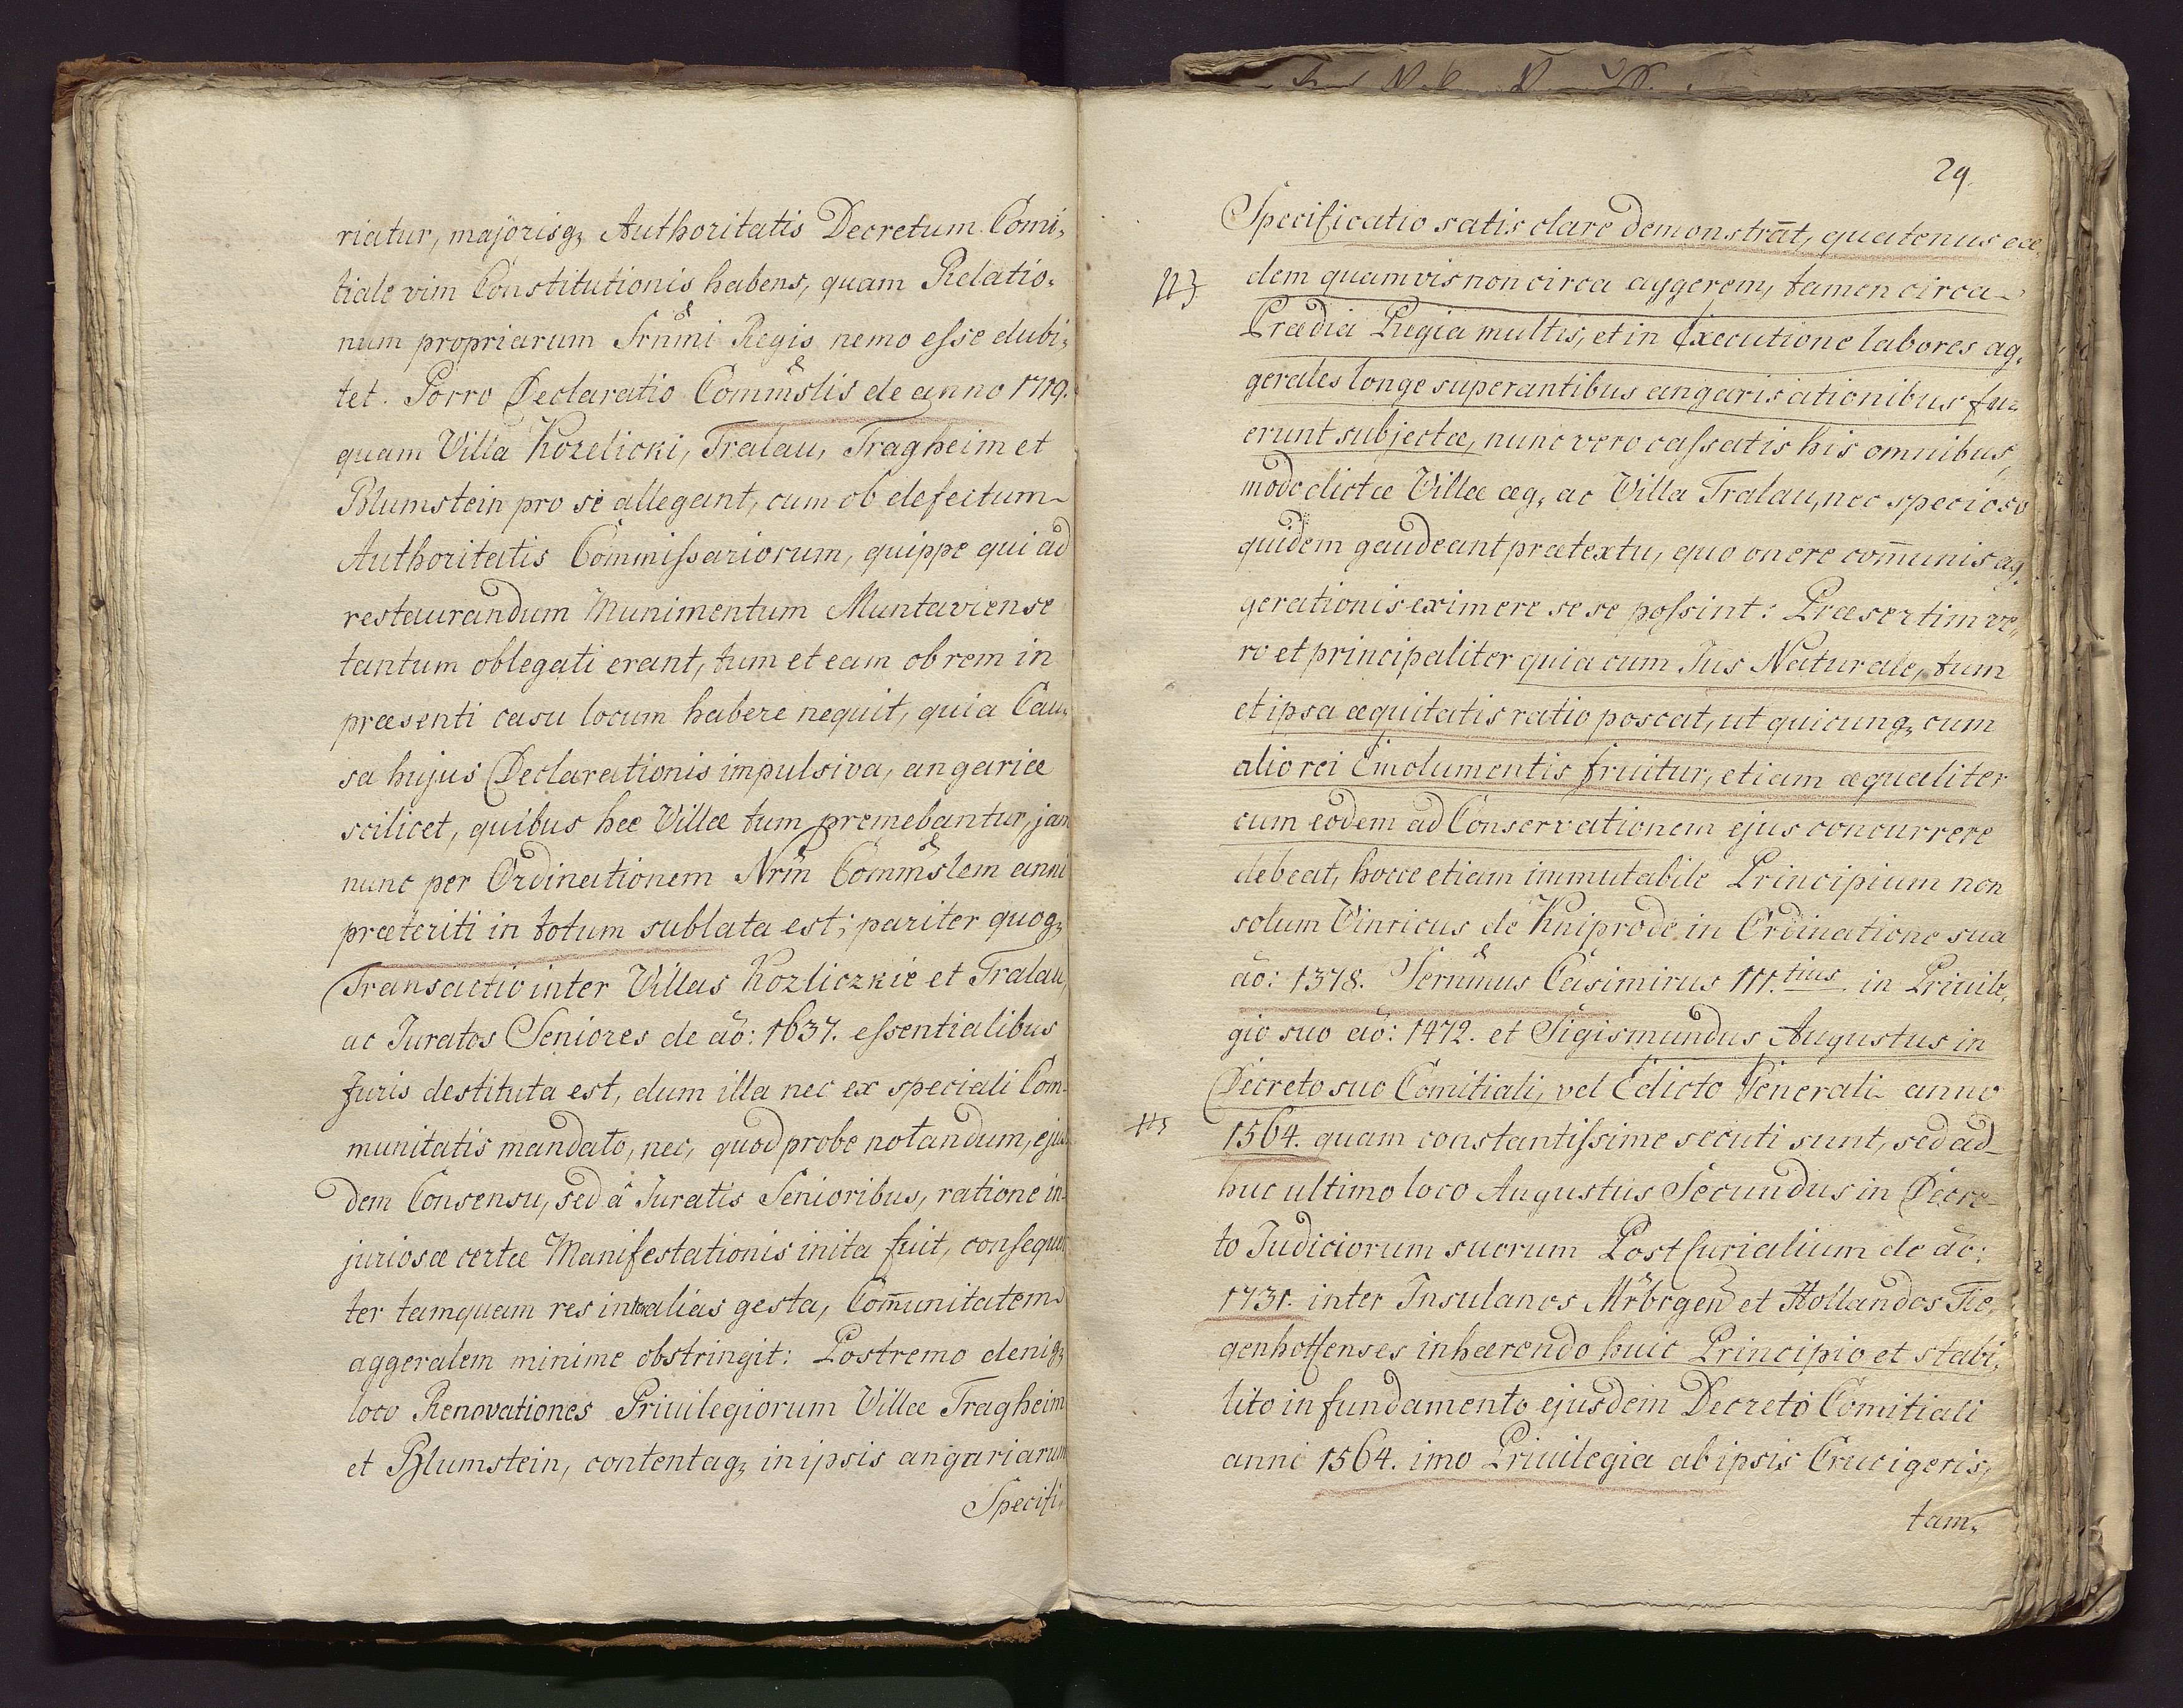 riatur, majorisq₃ Authoritatis Decretum Comi,
tiale vim Constitutionis habens, quam Relatio,
num propriarum Srnmi Regis nemo esse dubi,
tet. Porro Declaratio Commislis de anno 1719.
quam Villa Kozelicki, Tralau, Tragheim et
Blumstein pro se allegant, cum ob defectum
Authoritatis Commissariorum, quippe qui ad
restaurandum Munimentum Muntaviense
tantum oblegati erant, tum et eam ob rem in
præsenti casu locum habere nequit, quia Cau,
sa hujus Declarationis impulsiva, angariæ
scilicet, quibus hæ Villæ tum premebantur, jam
nunc per Ordinationem Nrm Commislem anni
præteriti in totum sublata est; pariter quoq₃
Transactio inter Villas Kozliczkie et Tralau,
ac Juratos Seniores de aõ: 1637. essentialibus
Juris destituta est, dum illa nec ex speciali Com-
munitatis mandato, nec, quod probe notandum, ejus
dem Consensu, sed â Juratis Senioribus, ratione in-
juriosæ certæ Manifestationis inita fuit, consequen
ter tamquam res inter alias gesta, Com̃unitatem
aggeralem minime obstringit: Postremo deniq₃
loco Renovationes Priuilegiorum Villæ Tragheim
et Blumstein, contentaq₃ in ipsis angariarum
Specifi,
29.
Specificatio satis clare demonstrãt, quatenus eæ,
dem quamvis non circa aggerem, tamen circa
Prædia Regia multis, et in Executione labores ag,
gerales longe superantibus angarisationibus fu,
erunt subjectæ, nunc vero cassatis his omnibus,
modo dictæ Villæ æq, ac Villa Tralau, nec specioso
quidem gaudeant prætextu, quo onere com̃unis ag,
gerationis eximere se se possint: Præsertim ve,
ro et principaliter quia cum Jus Naturale, tum
et ipsa æquitatis ratio poscat, ut quicunq₃ cum
alio rei Emolumentis fruitur, etiam æqualiter
cum eodem ad Conservationem ejus concurrere
debeat, hocce etiam immutabile Principium non
solum Vinricus de Kniprode in Ordinatione sua
aõ: 1378. Sernmus Casimirus III.tius in Priuile,
gio suo aõ: 1472. et Sigismundus Augustus in
Decreto suo Comitiali, vel Edicto Generali anno
1564. quam constantissime secuti sunt, sed ad
huc ultimo loco Augustus Secundus in Decre-
to Judiciorum suorum PostCurialium de aõ:
1731. inter Insulanos Mrbrgen et Hollandos Tie,
genhoffenses inhærendo huic Principio et stabi,
lito in fundamento ejusdem Decreto Comitiali
anni 1564. imo Priuilegia ab ipsis Crucigeris,
tam,